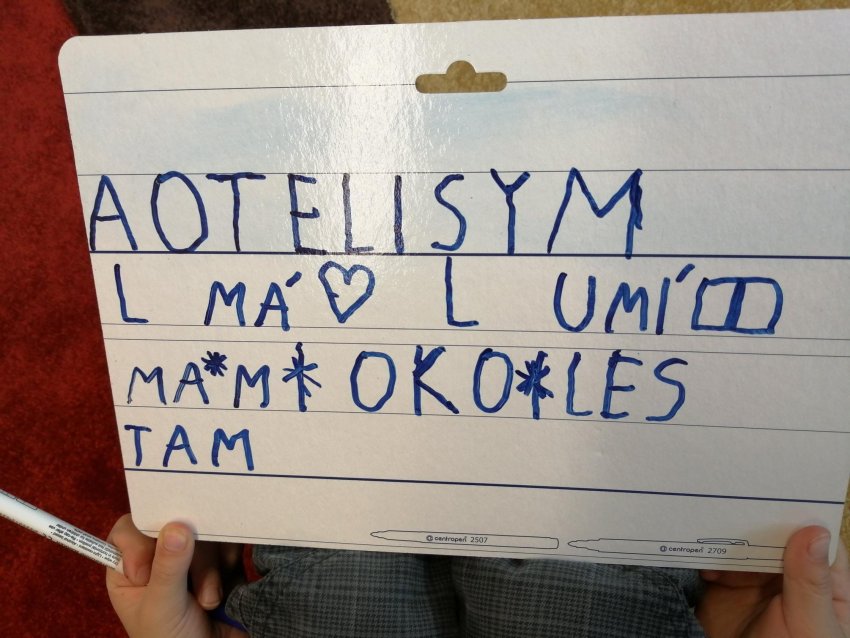 AOTELISYM
L MÁ ♡ L UMÍ
MA*M* OKO*LES
TAM
centropen 2507
centropen 2709